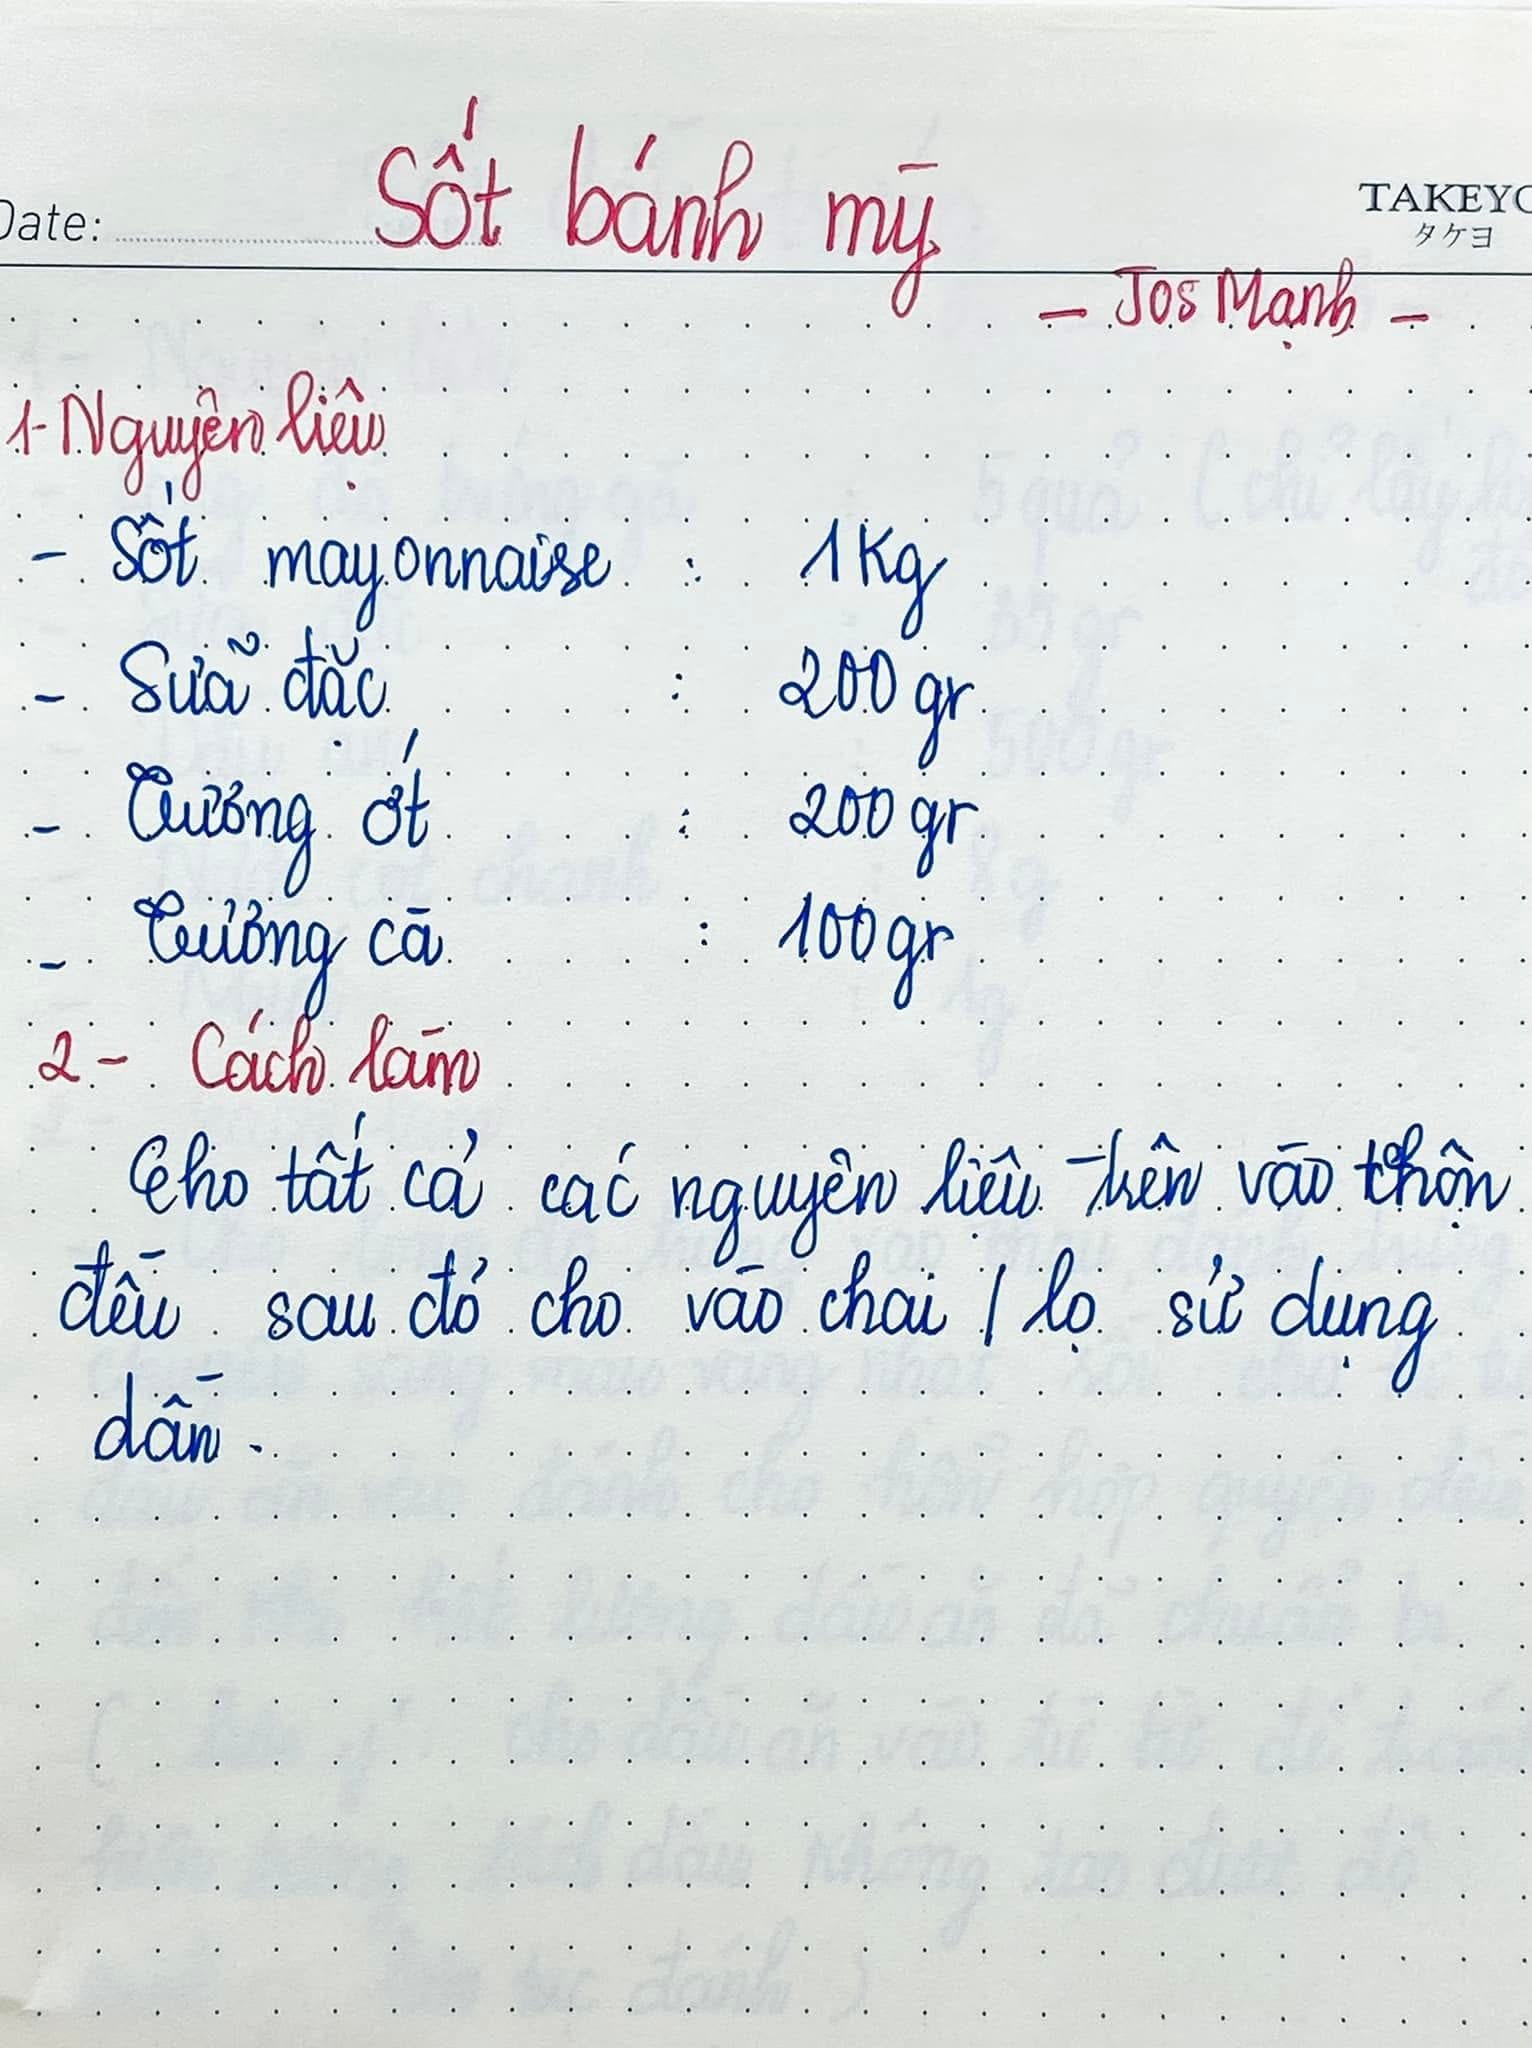 Sốt bánh mỳ
Date:
TAKEYO
タケヨ
- Jos Mạnh -
1- Nguyên liệu
- Sốt mayonnaise : 1Kg
- Sữa đặc : 200 gr
- Tương ớt : 200 gr
- Tương cà : 100 gr
2 - Cách làm
Cho tất cả các nguyên liệu trên vào trộn
đều sau đó cho vào chai / lọ sử dụng
dần.